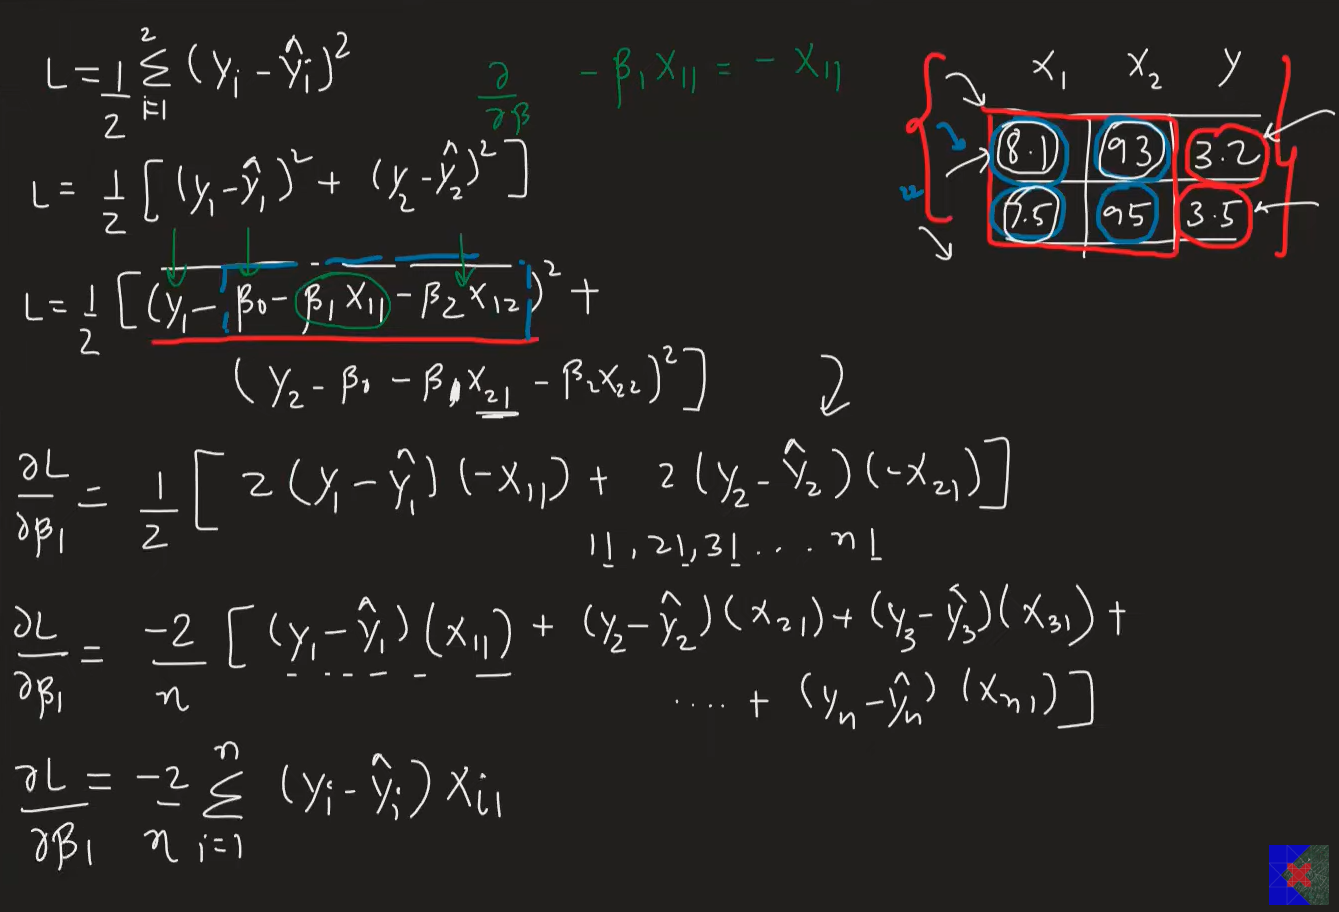 L = 1/2 Σ_{i=1}^{2} (y_i - ŷ_i)²
∂/∂β - β₁ x₁₁ = - x₁₁
x₁ x₂ y
8.1 93 3.2
7.5 95 3.5
L = 1/2 [ (y₁ - ŷ₁)² + (y₂ - ŷ₂)² ]
L = 1/2 [ (y₁ - β₀ - β₁ x₁₁ - β₂ x₁₂)² +
(y₂ - β₀ - β₁ x₂₁ - β₂ x₂₂)² ]
∂L/∂β₁ = 1/2 [ 2 (y₁ - ŷ₁) (-x₁₁) + 2 (y₂ - ŷ₂) (-x₂₁) ]
11, 21, 31 .... n1
∂L/∂β₁ = -2/n [ (y₁ - ŷ₁) (x₁₁) + (y₂ - ŷ₂) (x₂₁) + (y₃ - ŷ₃) (x₃₁) +
.... + (yₙ - ŷₙ) (xₙ₁) ]
∂L/∂β₁ = -2/n Σ_{i=1}^{n} (y_i - ŷ_i) x_{i1}